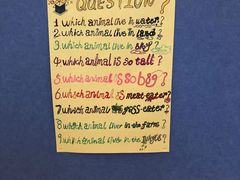 QUESTION?
1 which animal live in water?
2 which animal live in land?
3 which animal live in sky?
4 which animal is so tall?
5 which animal is so big?
6 which animal is meat-eater?
7 which animal grass-eater?
8 which animal live in the farm?
9 which animal live in the jungle?